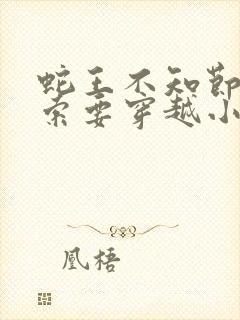 蛇王不知节
索要穿越小
凰梧